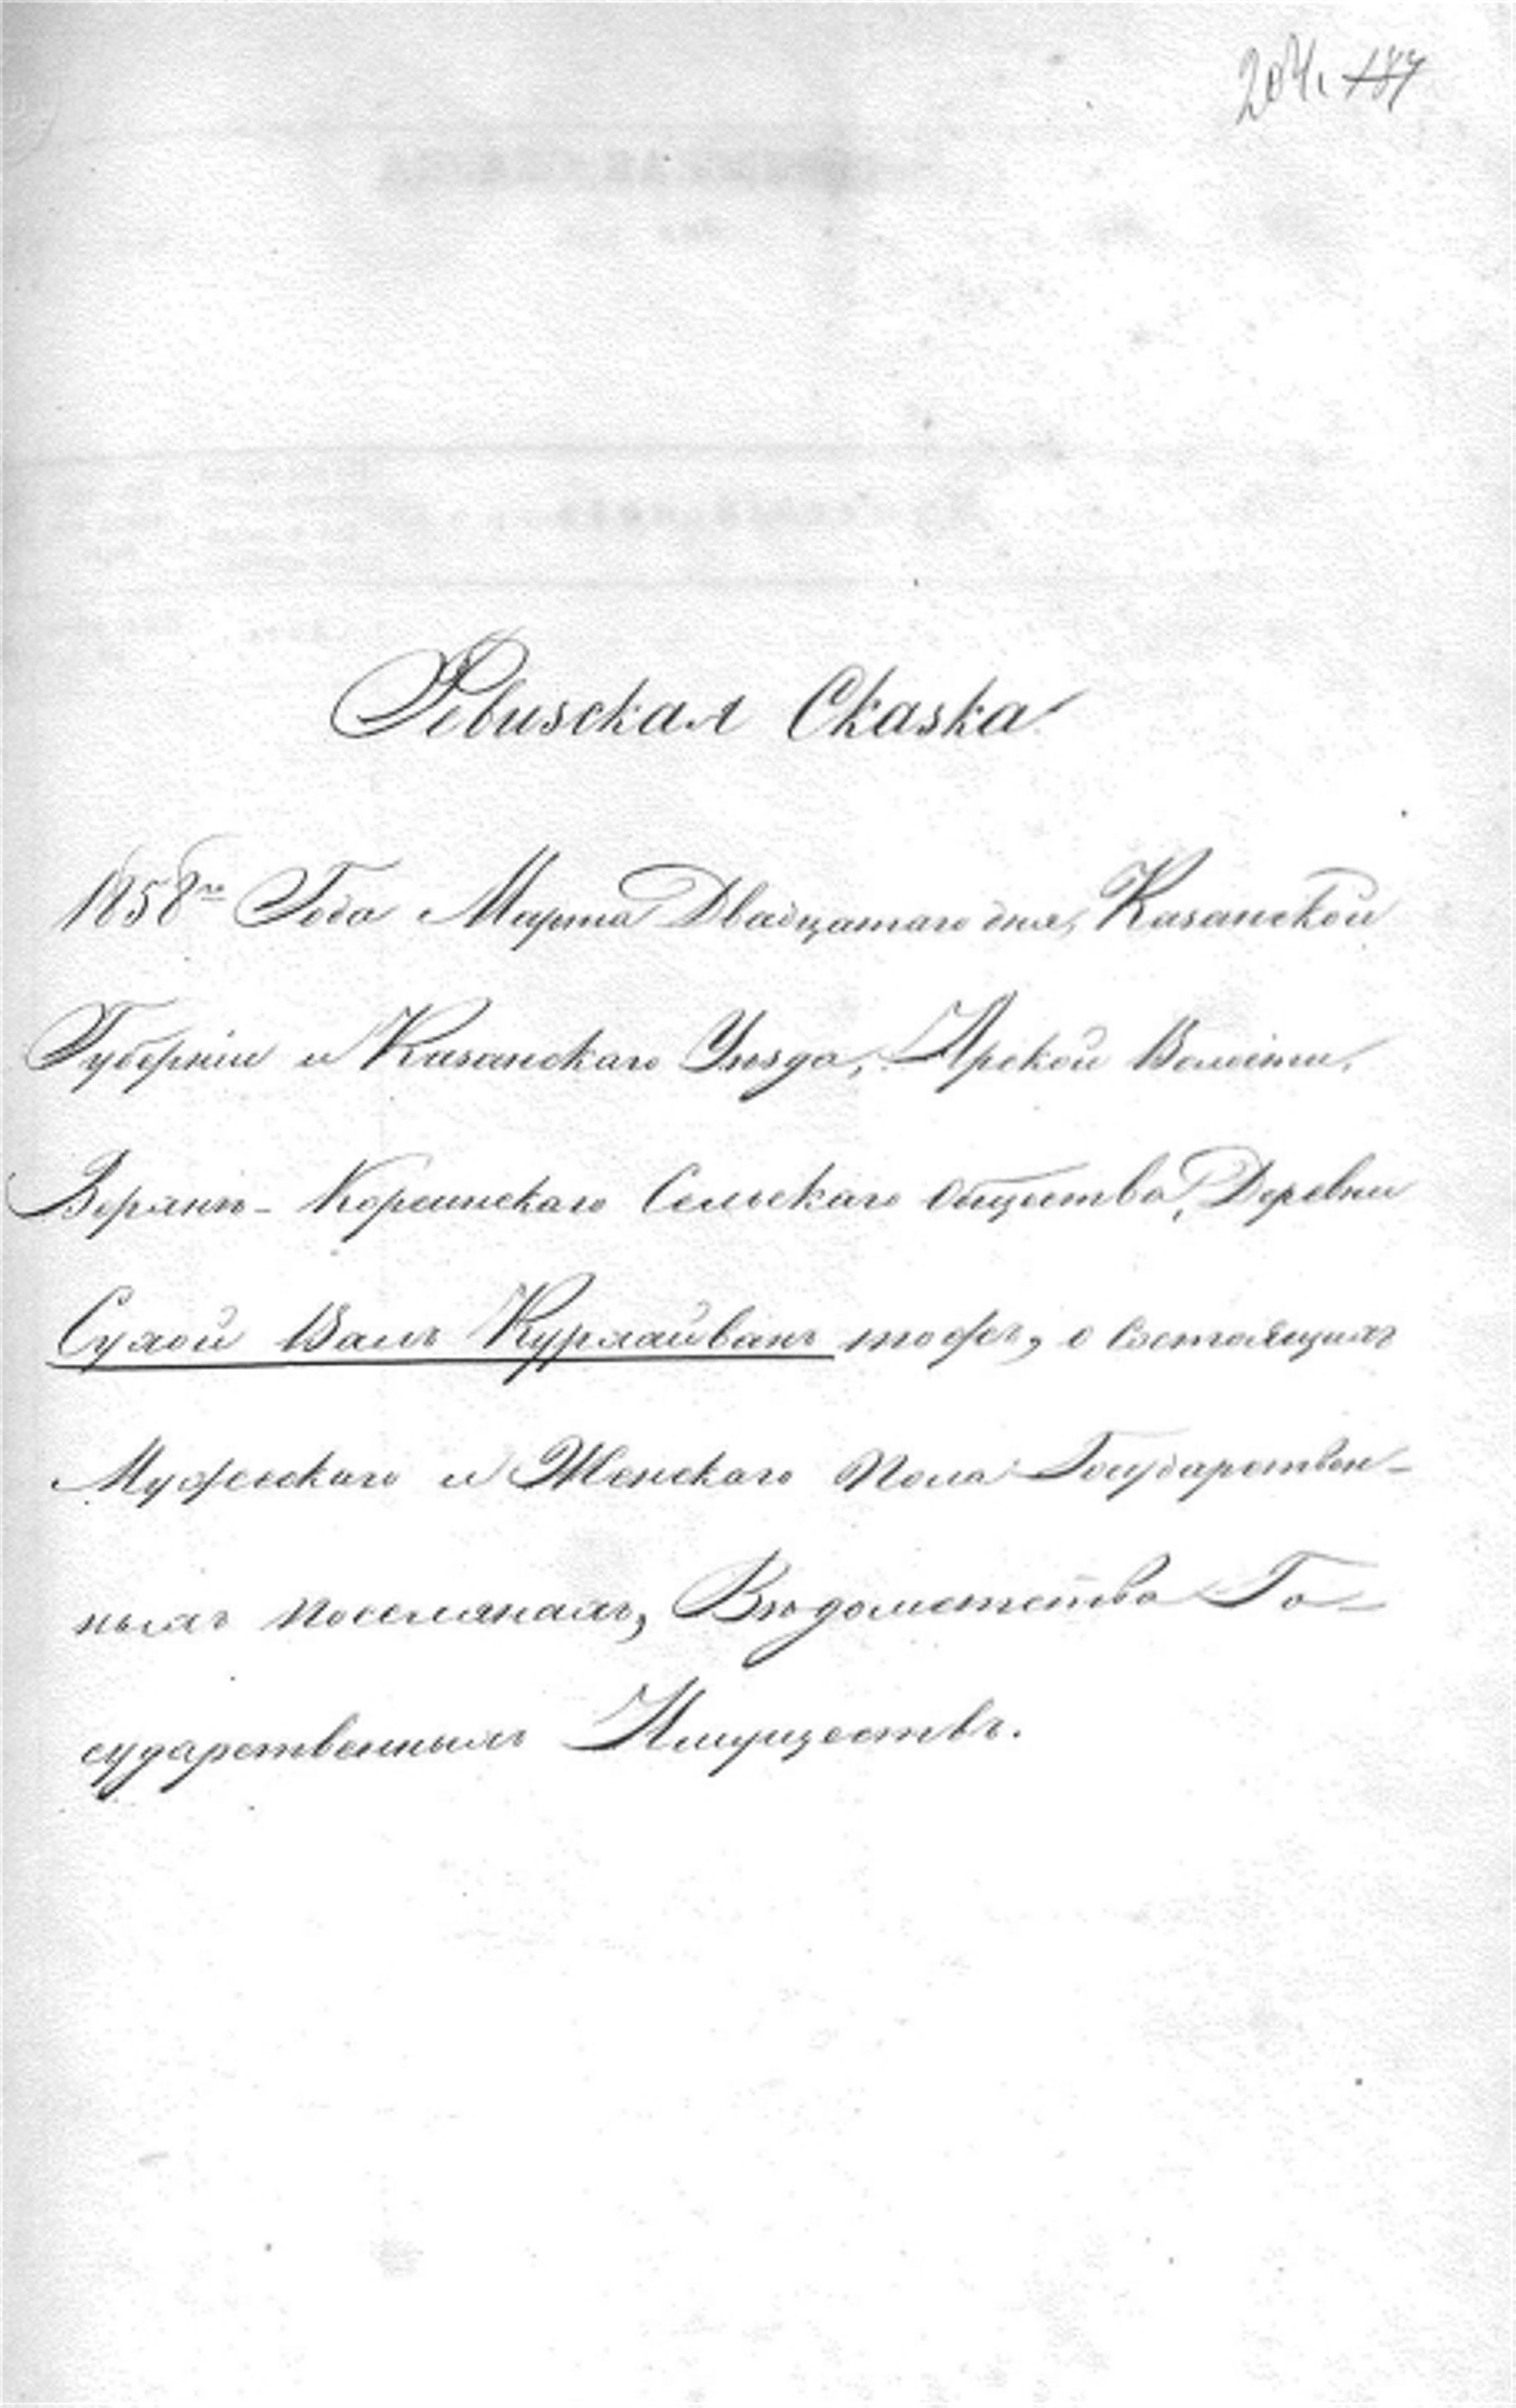 204. 187
Ревизская Сказка
1858го Года Марта Двадцатаго дня, Казанской
Губернiи и Казанскаго Уѣзда, Арской Волости,
Верхнѣ-Корсинскаго Сельскаго Общества, Деревни
Сухой Валъ Курхайванъ тожъ, о состоящихъ
Мужескаго и Женскаго Пола Государствен-
ныхъ поселянахъ, Вѣдомства Го-
сударственныхъ Имуществъ.